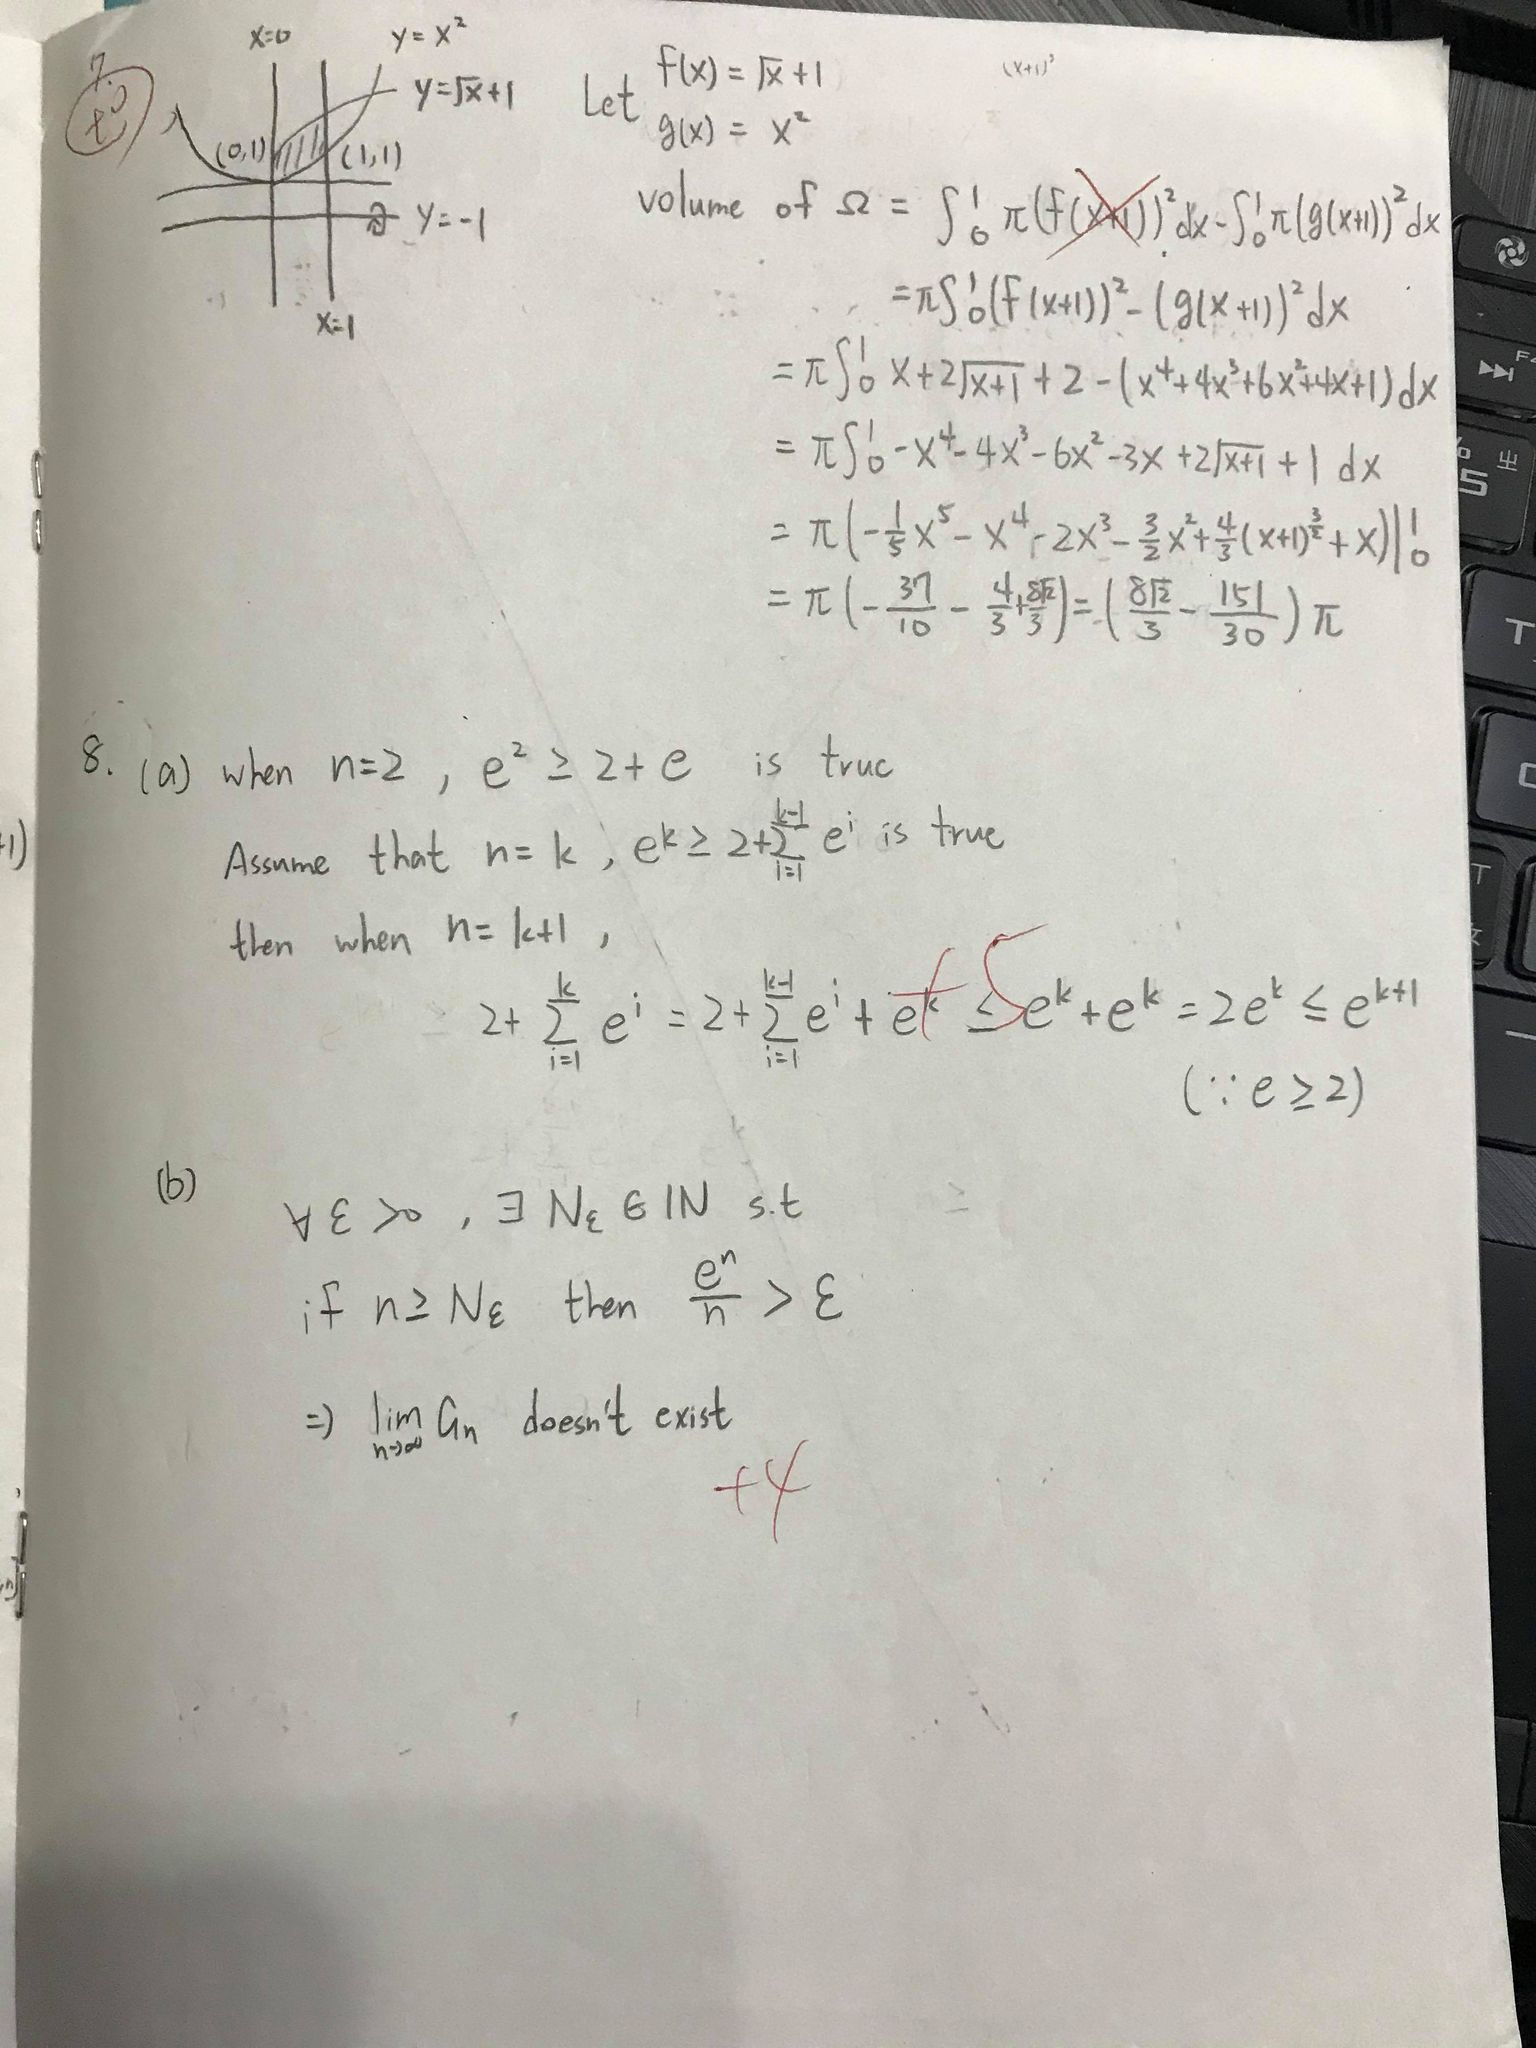 7.
+0
x=0
y=x²
y=√x+1
(0,1)
(1,1)
y=-1
x=1
Let f(x)=√x+1
g(x)=x²
(x+1)³
volume of Ω = ∫₀¹ π(f(x+1))²dx-∫₀¹π(g(x+1))²dx
=π∫₀¹(f(x+1))²-(g(x+1))²dx
=π∫₀¹ x+2√(x+1)+2-(x⁴+4x³+6x²+4x+1)dx
=π∫₀¹ -x⁴-4x³-6x²-3x+2√(x+1)+1 dx
=π(-1/5x⁵-x⁴-2x³-3/2x²+4/3(x+1)^(3/2)+x)|₀¹
=π(-37/10-4/3+8√2/3)=(8√2/3-151/30)π
8. (a) when n=2, e² ≥ 2+e is true
Assume that n=k, e^k ≥ 2+∑_{i=1}^{k-1} e^i is true
then when n=k+1,
2+∑_{i=1}^{k} e^i = 2+∑_{i=1}^{k-1} e^i + e^k ≤ e^k+e^k = 2e^k ≤ e^{k+1}
+5
(∵ e≥2)
(b) ∀ε>0, ∃ N_ε ∈ ℕ s.t
if n≥N_ε then e^n/n > ε
⇒ lim_{n→∞} a_n doesn't exist
+4
F
5
T
C